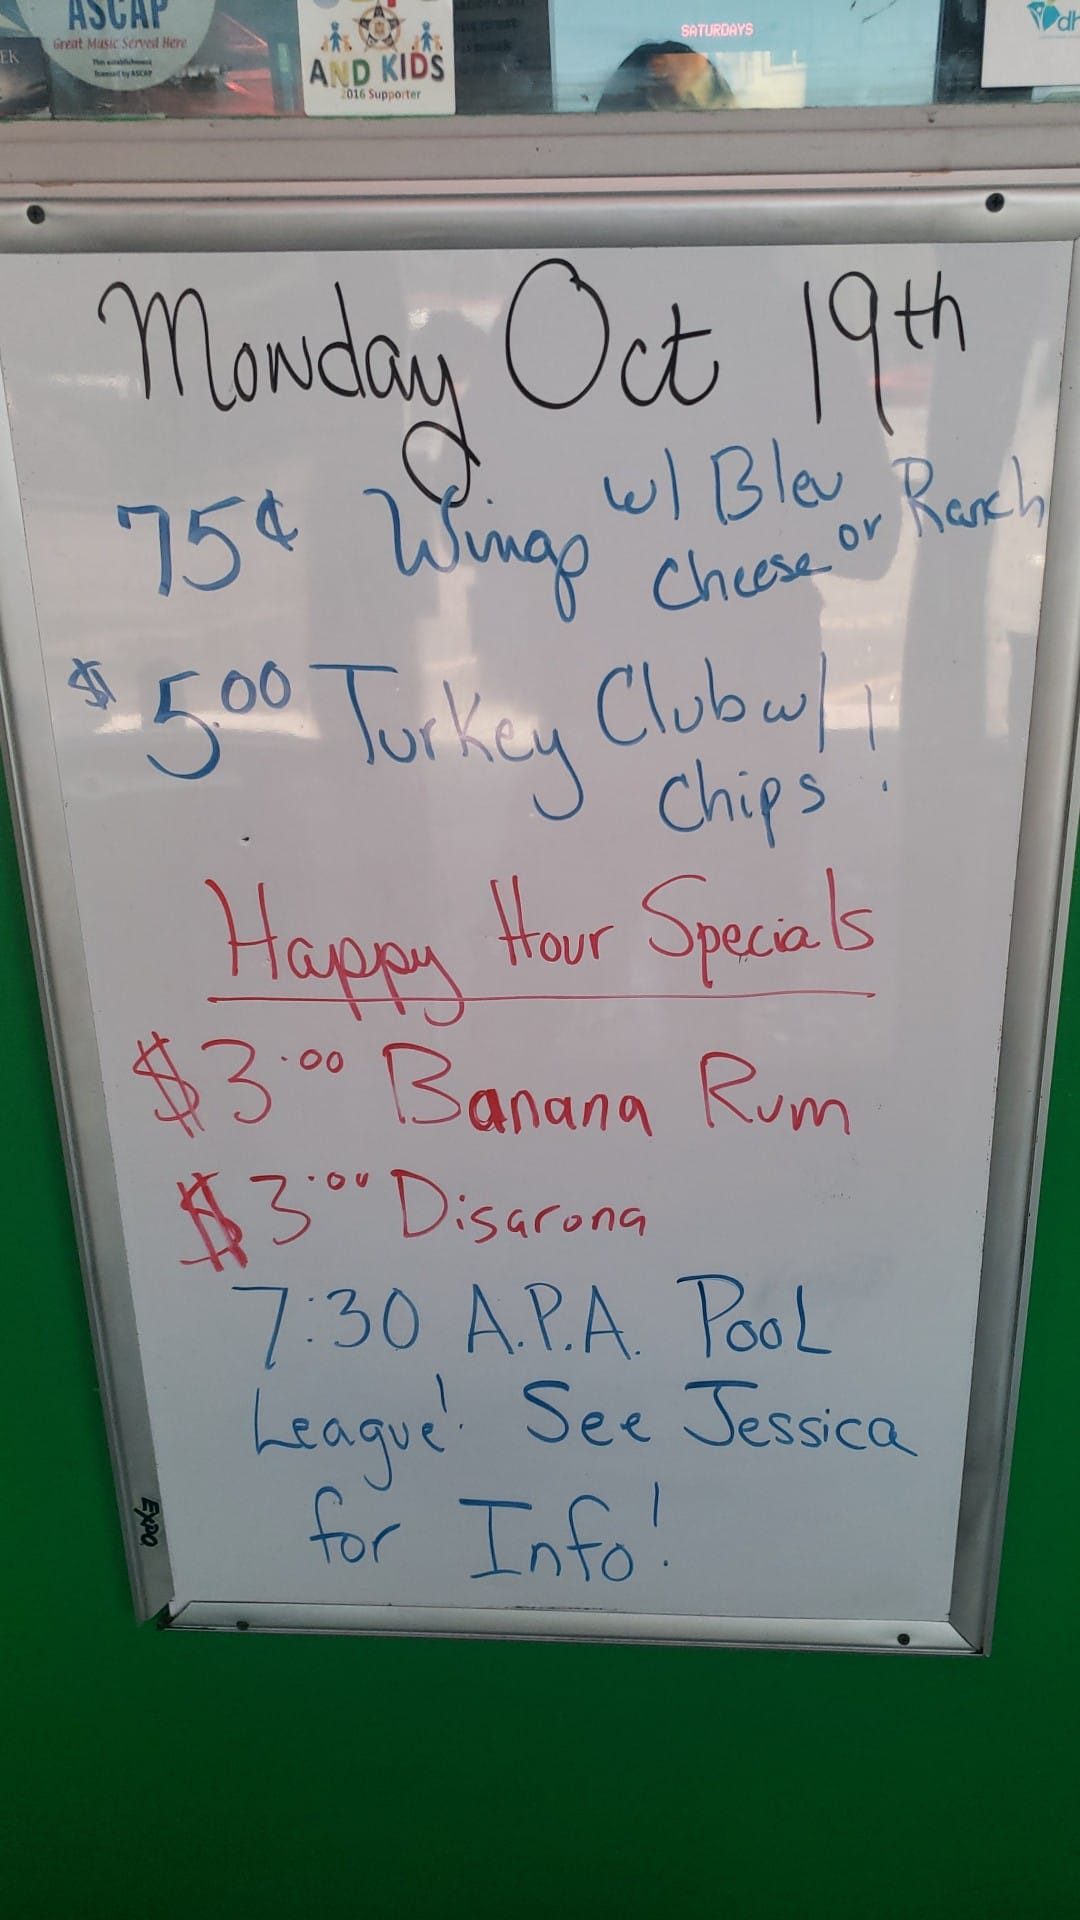 ASCAP
Great Music Served Here
This establishment
licensed by ASCAP
EK
AND KIDS
2016 Supporter
SATURDAYS
dh
Monday Oct 19th
75¢ Wings w/ Bleu
Cheese or Ranch
$5.00 Turkey Club w/
Chips!
Happy Hour Specials
$3.00 Banana Rum
$3.00 Disarona
7:30 A.P.A. Pool
League! See Jessica
for Info!
EXPO